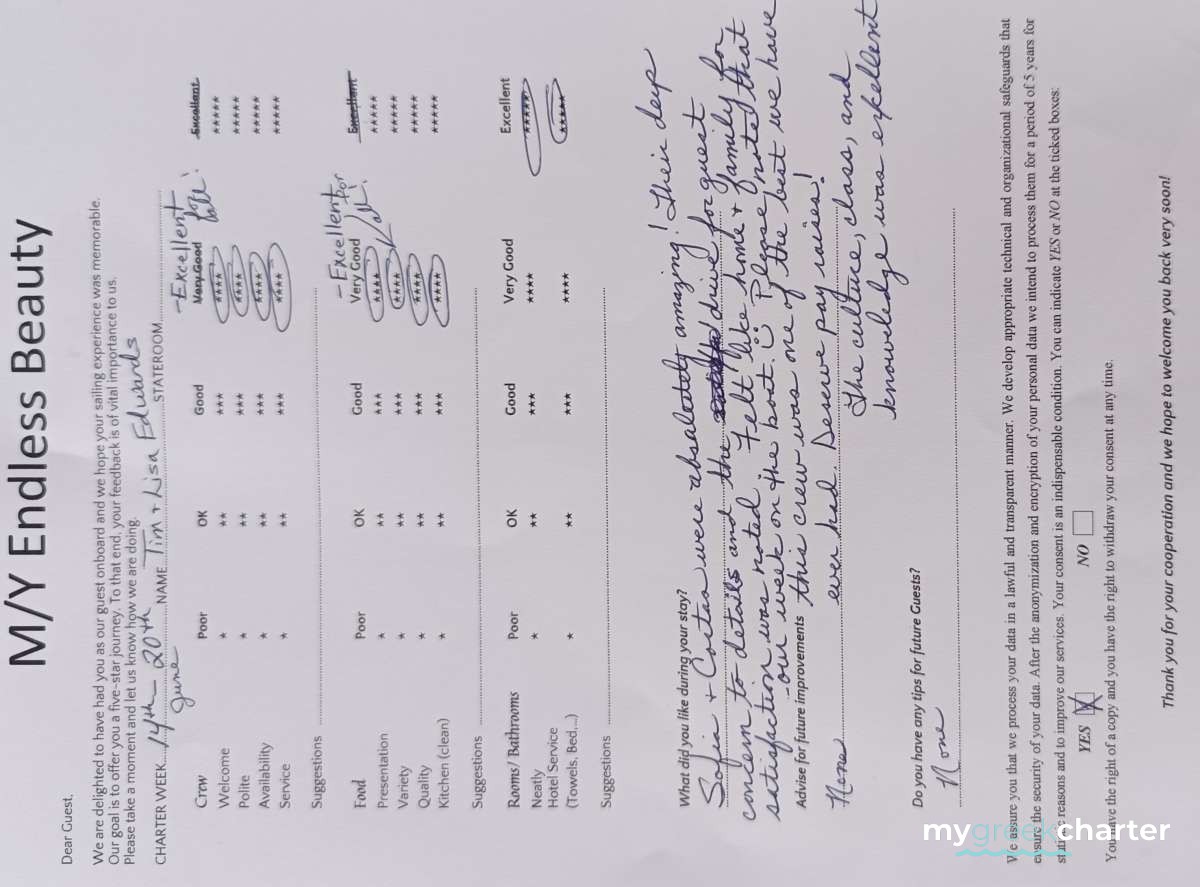 M/Y Endless Beauty
Dear Guest,
We are delighted to have had you as our guest onboard and we hope your sailing experience was memorable.
Our goal is to offer you a five-star journey. To that end, your feedback is of vital importance to us.
Please take a moment and let us know how we are doing.
CHARTER WEEK 14th - 20th June NAME Tim + Lisa Edwards STATEROOM
- Excellent for all!
Crew Poor OK Good Very Good Excellent
Welcome * ** *** **** *****
Polite * ** *** **** *****
Availability * ** *** **** *****
Service * ** *** **** *****
Suggestions
- Excellent for all!
Food Poor OK Good Very Good Excellent
Presentation * ** *** **** *****
Variety * ** *** **** *****
Quality * ** *** **** *****
Kitchen (clean) * ** *** **** *****
Suggestions
Rooms/ Bathrooms Poor OK Good Very Good Excellent
Neatly * ** *** **** *****
Hotel Service
(Towels, Bed...) * ** *** **** *****
Suggestions
What did you like during your stay?
Sofia + Costas were absalutely amazing! Their deep
concern to details and the drive for guest
satisfaction was noted. Felt like home + family for
our week on the boat. Please note that
Advise for future improvements
this crew was one of the best we have
None
ever had. Deserve pay raises!
The culture, class, and
knoweledge was exellent
Do you have any tips for future Guests?
None
We assure you that we process your data in a lawful and transparent manner. We develop appropriate technical and organizational safeguards that
ensure the security of your data. After the anonymization and encryption of your personal data we intend to process them for a period of 5 years for
statistic reasons and to improve our services. Your consent is an indispensable condition. You can indicate YES or NO at the ticked boxes:
YES X NO
You have the right of a copy and you have the right to withdraw your consent at any time.
Thank you for your cooperation and we hope to welcome you back very soon!
mygreekcharter